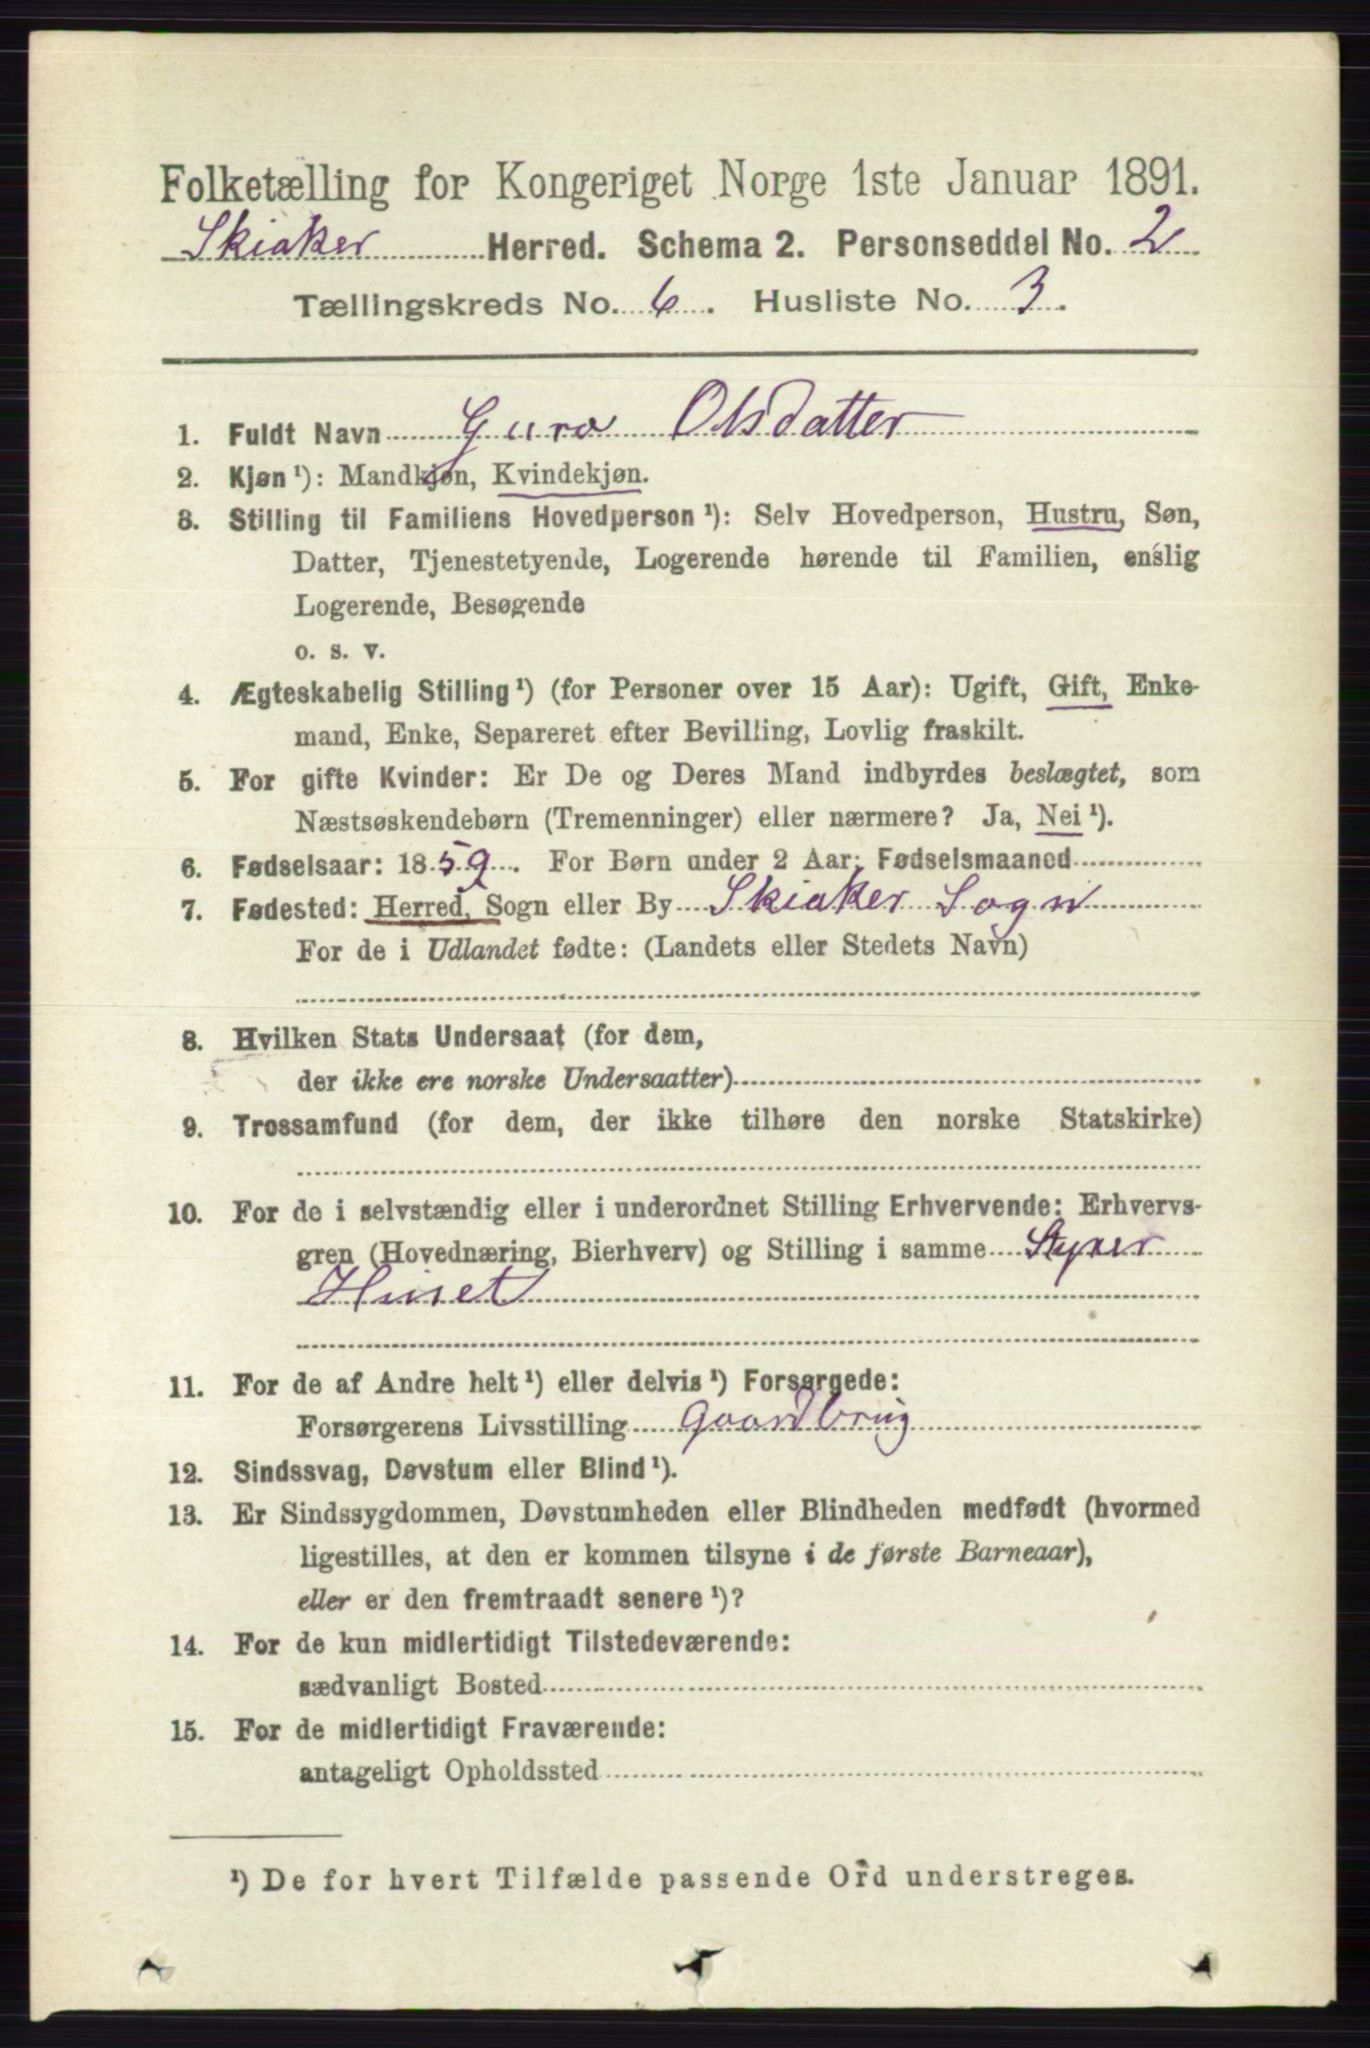 Folketælling for Kongeriget Norge 1ste Januar 1891.
Skiaker Herred. Schema 2. Personseddel No. 2
Tællingskreds No. 6. Husliste No. 3.
1. Fuldt Navn Guro Olsdatter
2. Kjøn ¹): Mandkjøn, Kvindekjøn.
3. Stilling til Familiens Hovedperson ¹): Selv Hovedperson, Hustru, Søn,
Datter, Tjenestetyende, Logerende hørende til Familien, enslig
Logerende, Besøgende
o. s. v.
4. Ægteskabelig Stilling ¹) (for Personer over 15 Aar): Ugift, Gift, Enke-
mand, Enke, Separeret efter Bevilling, Lovlig fraskilt.
5. For gifte Kvinder: Er De og Deres Mand indbyrdes beslægtet, som
Næstsøskendebørn (Tremenninger) eller nærmere? Ja, Nei ¹).
6. Fødselsaar: 1859. For Børn under 2 Aar: Fødselsmaaned
7. Fødested: Herred, Sogn eller By Skiaker Sogn
For de i Udlandet fødte: (Landets eller Stedets Navn)
8. Hvilken Stats Undersaat (for dem,
der ikke ere norske Undersaatter)
9. Trossamfund (for dem, der ikke tilhøre den norske Statskirke)
10. For de i selvstændig eller i underordnet Stilling Erhvervende: Erhvervs-
gren (Hovednæring, Bierhverv) og Stilling i samme Styrer
Huset
11. For de af Andre helt ¹) eller delvis ¹) Forsørgede:
Forsørgerens Livsstilling Gaardbrug
12. Sindssvag, Døvstum eller Blind ¹).
13. Er Sindssygdommen, Døvstumheden eller Blindheden medfødt (hvormed
ligestilles, at den er kommen tilsyne i de første Barneaar),
eller er den fremtraadt senere ¹)?
14. For de kun midlertidigt Tilstedeværende:
sædvanligt Bosted
15. For de midlertidigt Fraværende:
antageligt Opholdssted
¹) De for hvert Tilfælde passende Ord understreges.